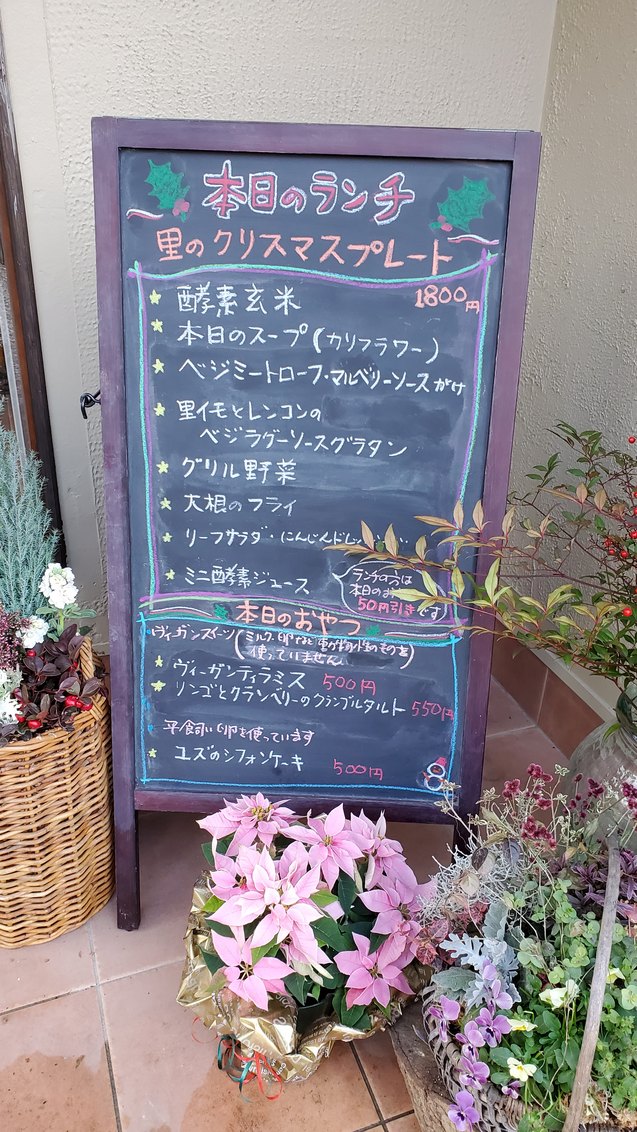 本日のランチ
里のクリスマスプレート
1800円
酵素玄米
本日のスープ(カリフラワー)
ベジミートローフ・マルベリーソースがけ
里イモとレンコンの
ベジラグーソースグラタン
グリル野菜
大根のフライ
リーフサラダ・にんじんドレ
ミニ酵素ジュース
ランチの方は
本日のお
50円引きです
本日のおやつ
ヴィーガンスイーツ(ミルク、卵など動物性のものを
使っていません)
ヴィーガンティラミス 500円
リンゴとクランベリーのクランブルタルト 550円
平飼い卵を使っています
ユズのシフォンケーキ 500円